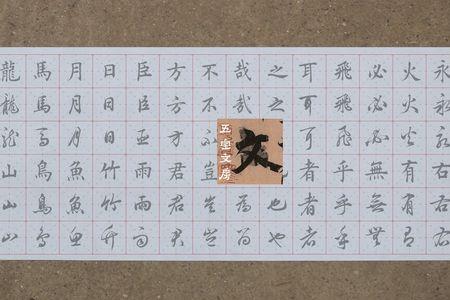 永永永右右右
火火火有有有
必必必無無無
飛飛飛乎乎乎
耳耳耳者者者
之之也也
哉哉為為
不不不豈豈豈
方方方君君君
臣臣臣雨雨雨
日日日竹竹竹
月月月魚魚魚
馬馬馬鳥鳥鳥
龍龍龍山山山
文
五文房